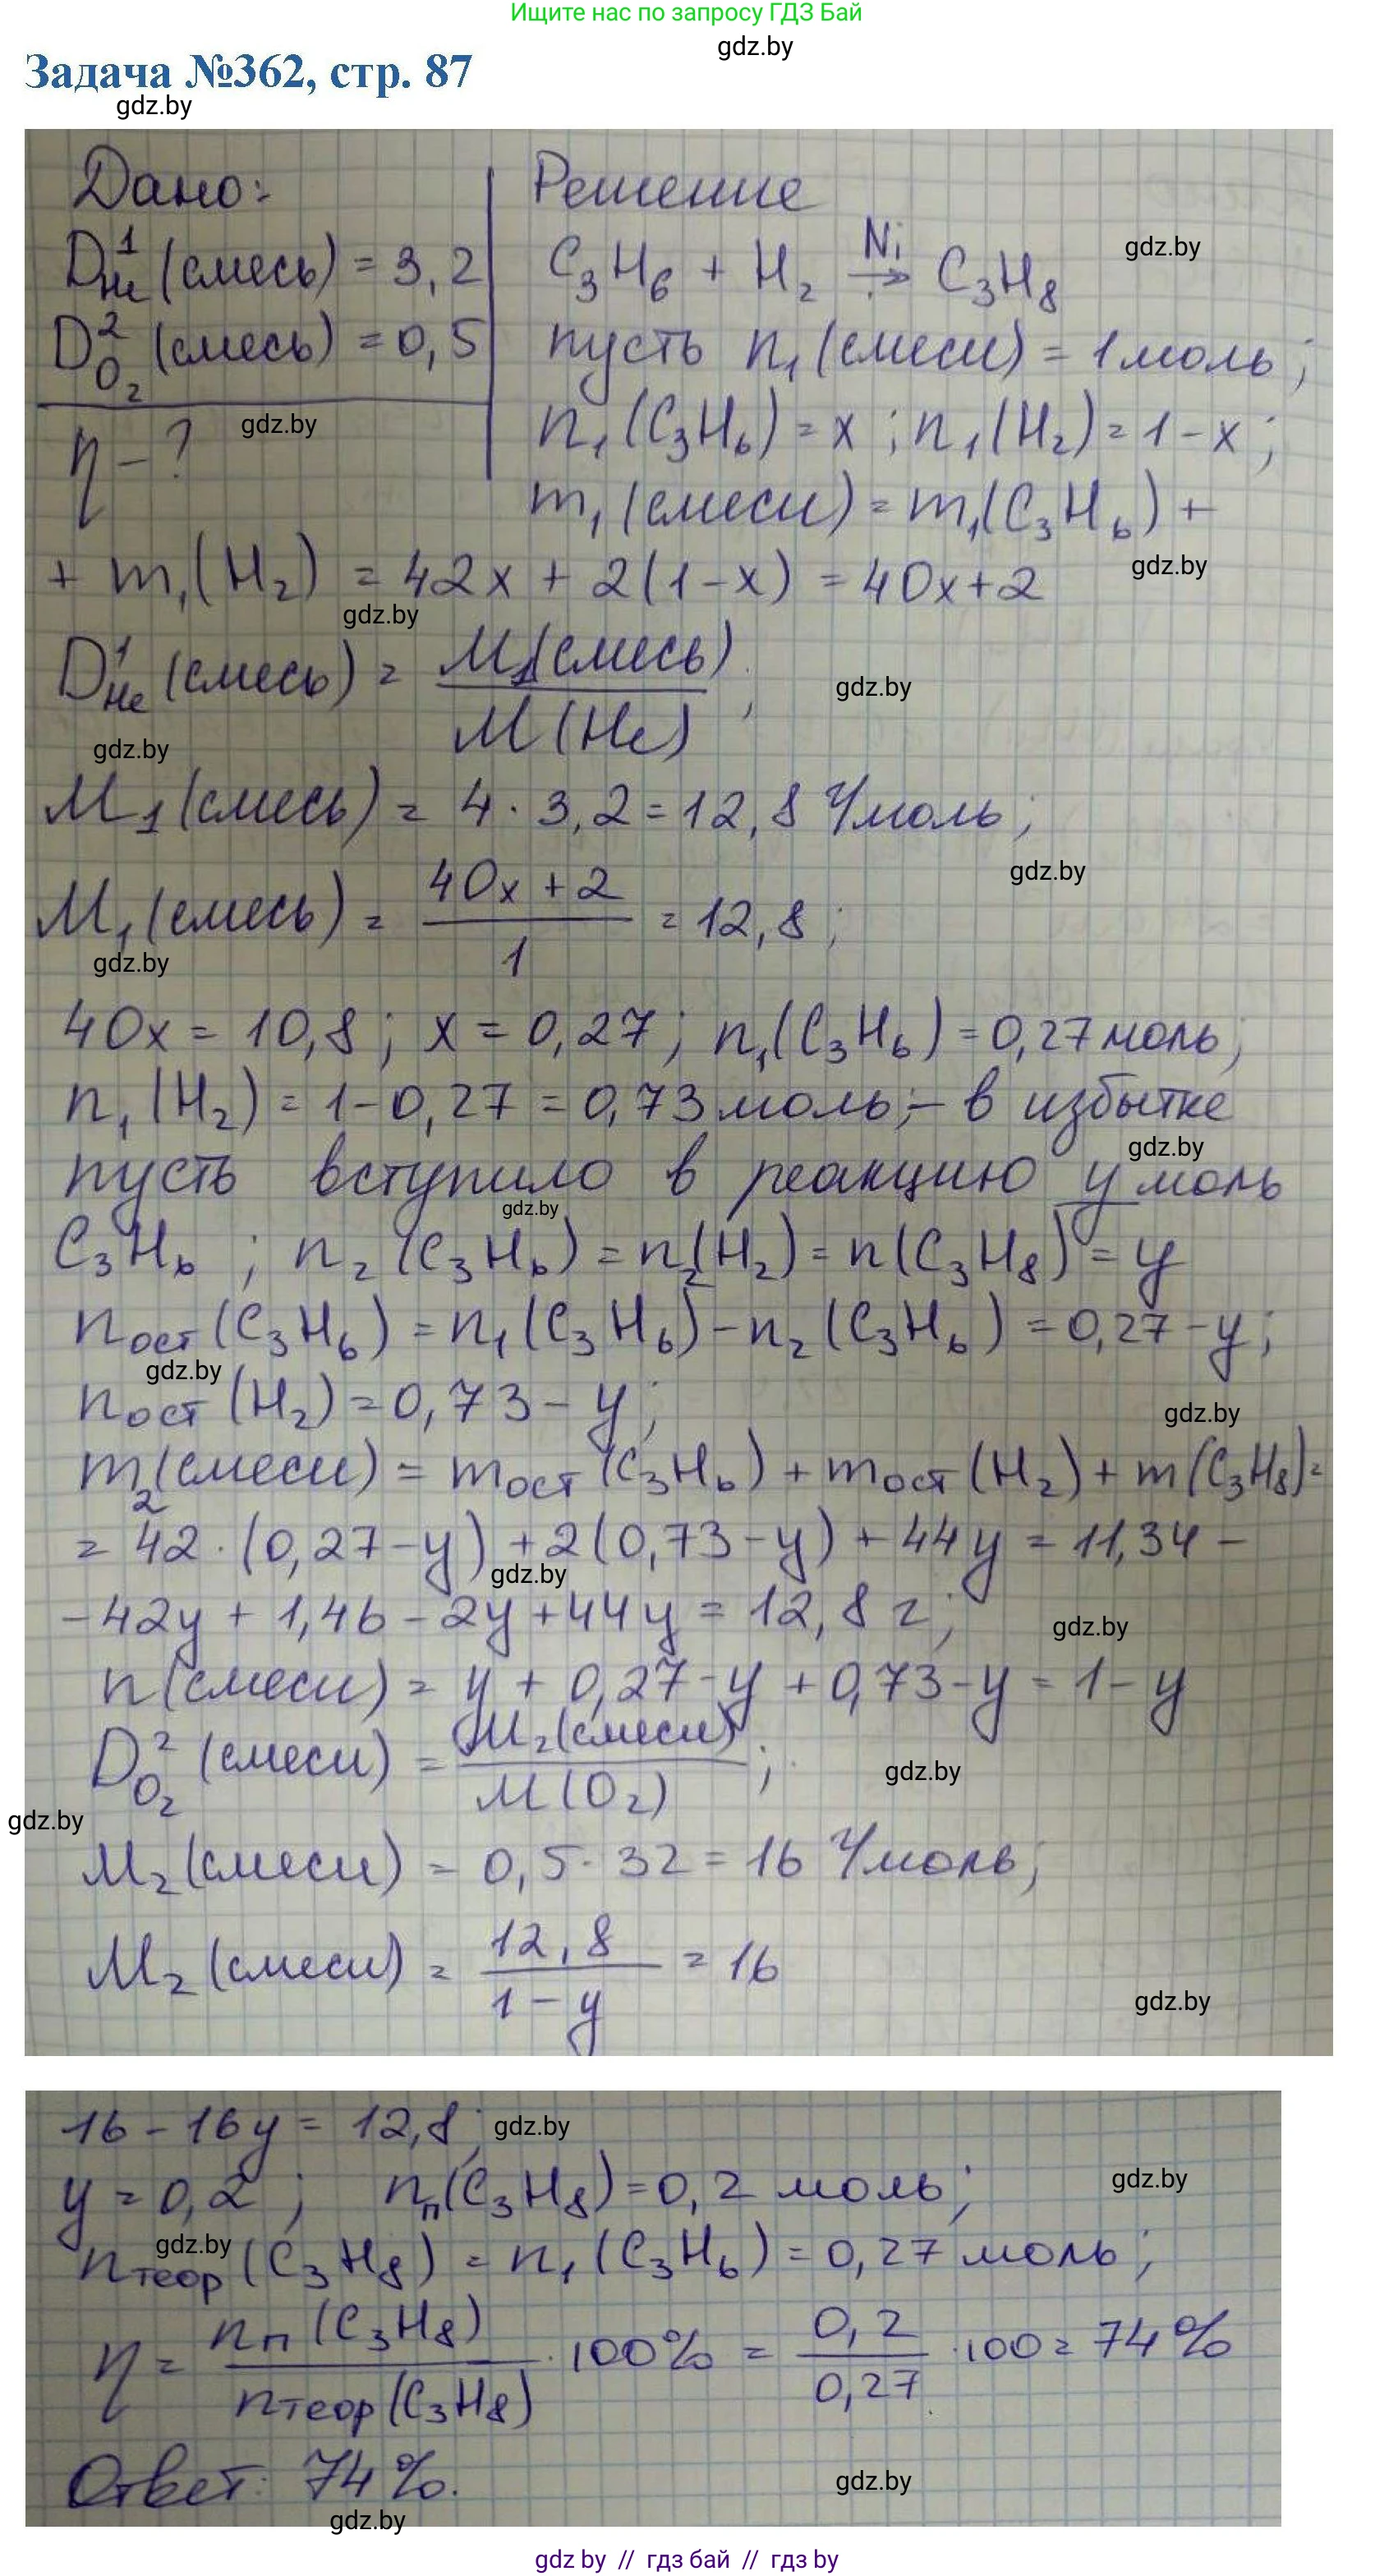 Ищите нас по запросу ГДЗ Бай
gdz.by
Задача №362, стр. 87
gdz.by
Дано:
D¹He (смесь) = 3,2
D²O₂ (смесь) = 0,5
gdz.by
η - ?
Решение
C₃H₆ + H₂ Ni→ C₃H₈
gdz.by
пусть n₁(смеси) = 1 моль;
n₁(C₃H₆) = x; n₁(H₂) = 1-x;
m₁(смеси) = m₁(C₃H₆) +
+ m₁(H₂) = 42x + 2(1-x) = 40x+2
gdz.by
gdz.by
D¹He (смесь) = M₁(смесь) / M(He);
gdz.by
gdz.by
M₁(смесь) = 4 · 3,2 = 12,8 г/моль;
gdz.by
M₁(смесь) = (40x + 2) / 1 = 12,8;
gdz.by
40x = 10,8; x = 0,27; n₁(C₃H₆) = 0,27 моль;
n₁(H₂) = 1-0,27 = 0,73 моль; - в избытке
gdz.by
пусть вступило в реакцию y моль
gdz.by
C₃H₆; n₂(C₃H₆) = n₂(H₂) = n(C₃H₈) = y
nост(C₃H₆) = n₁(C₃H₆) - n₂(C₃H₆) = 0,27-y;
gdz.by
nост(H₂) = 0,73 - y;
gdz.by
m₂(смеси) = mост(C₃H₆) + mост(H₂) + m(C₃H₈) =
= 42 · (0,27-y) + 2(0,73-y) + 44y = 11,34 -
gdz.by
- 42y + 1,46 - 2y + 44y = 12,8 г;
gdz.by
n(смеси) = y + 0,27-y + 0,73-y = 1-y
D²O₂ (смеси) = M₂(смеси) / M(O₂);
gdz.by
gdz.by
M₂(смеси) = 0,5 · 32 = 16 г/моль;
M₂(смеси) = 12,8 / (1-y) = 16
gdz.by
16 - 16y = 12,8;
gdz.by
y = 0,2; nп(C₃H₈) = 0,2 моль;
gdz.by
gdz.by
nтеор(C₃H₈) = n₁(C₃H₆) = 0,27 моль;
η = nп(C₃H₈) / nтеор(C₃H₈) · 100% = 0,2 / 0,27 · 100 = 74%
Ответ: 74%.
gdz.by
gdz.by
gdz by // гдз бай // гдз by